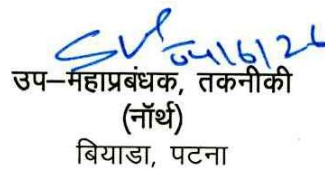 04/6/26
उप–महाप्रबंधक, तकनीकी
(नॉर्थ)
बियाडा, पटना